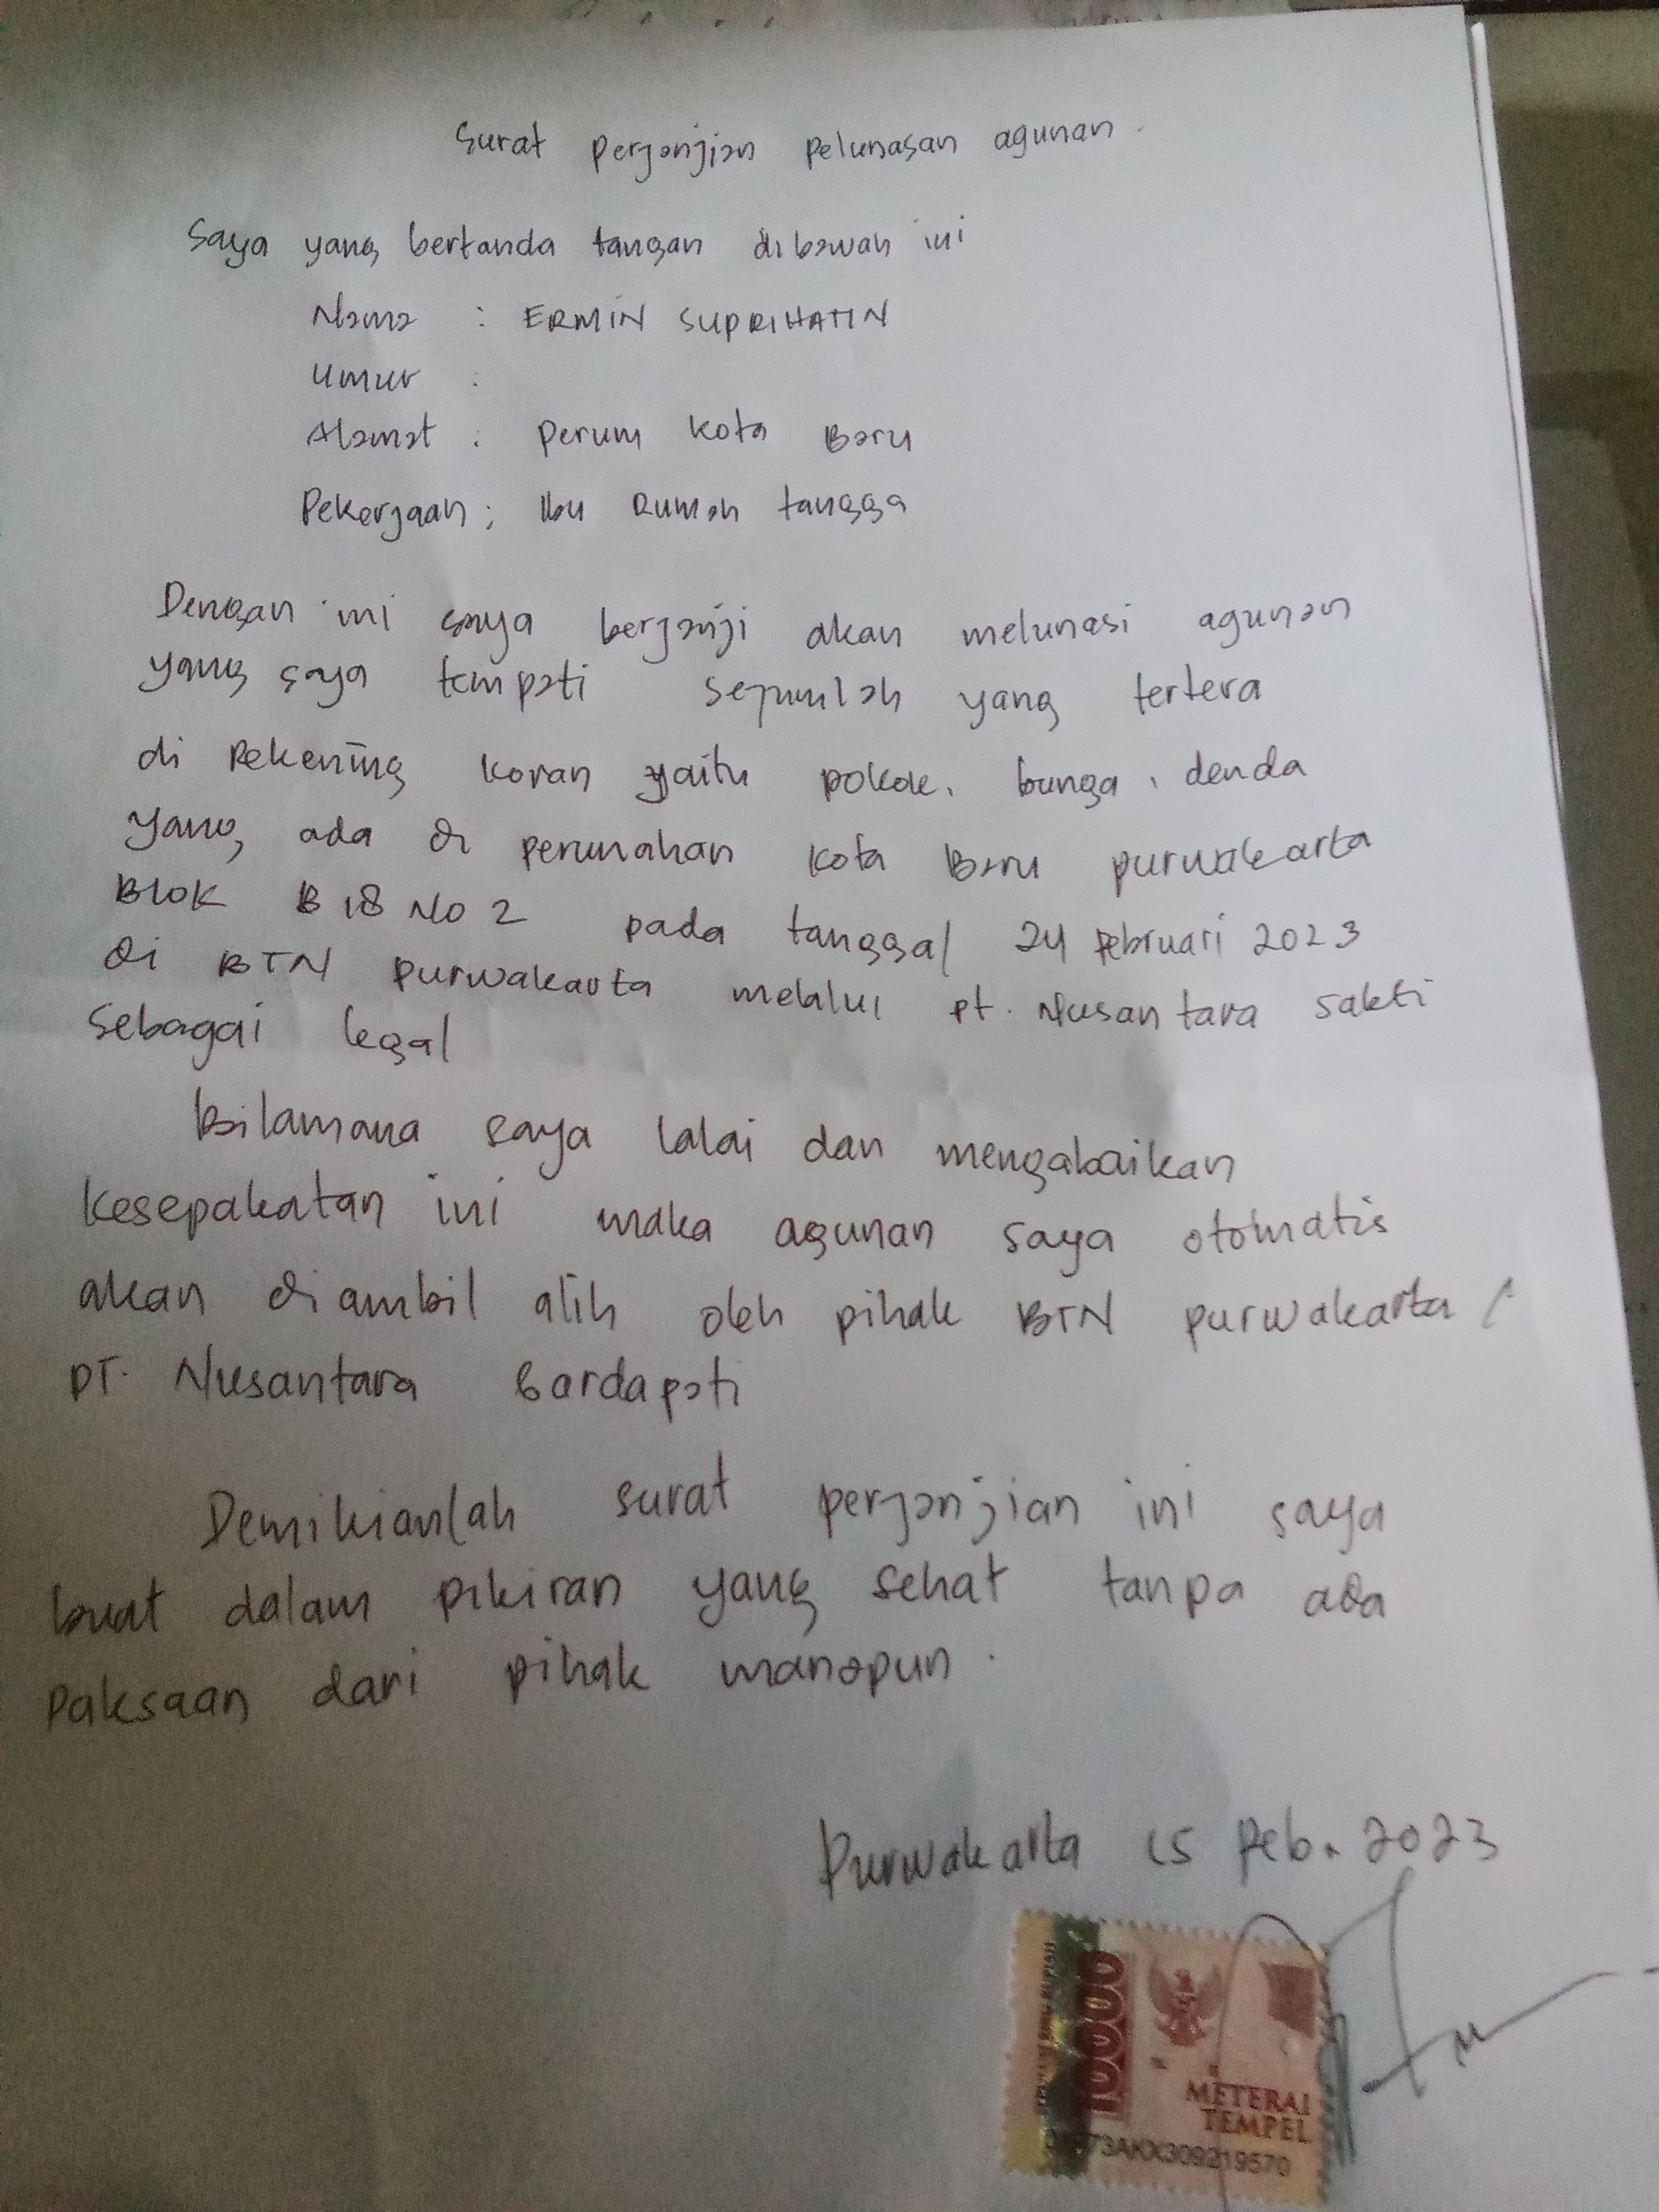 Surat perjanjian pelunasan agunan.
Saya yang bertanda tangan dibawah ini
Nama : ERMIN SUPRIHATIN
Umur :
Alamat : Perum Kota Baru
Pekerjaan ; Ibu Rumah tangga
Dengan ini saya berjanji akan melunasi agunan
yang saya tempati sejumlah yang tertera
di Rekening koran yaitu pokok, bunga, denda
yang ada di perumahan Kota Baru purwakarta
Blok B 18 No 2 pada tanggal 24 Februari 2023
di BTN purwakarta melalui pt. Nusantara sakti
sebagai legal
Bilamana saya lalai dan mengabaikan
kesepakatan ini maka agunan saya otomatis
akan diambil alih oleh pihak BTN purwakarta /
PT. Nusantara
Demikianlah surat perjanjian ini saya
buat dalam pikiran yang sehat tanpa ada
paksaan dari pihak manapun.
Purwakarta 15 Feb. 2023
10000
METERAI
TEMPEL
73AKX309219570